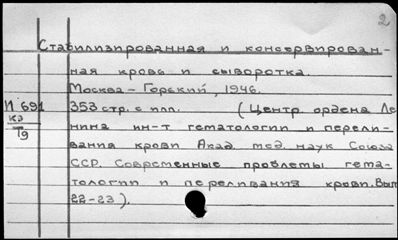 2
Стабилизированная и консервирован-
ная кровь и сыворотка.
Москва - Горский, 1946.
И 691 353 стр. с илл. (Центр. ордена Ле
кз
Т9
нина ин-т гематологии и перели-
вания крови Акад. мед. наук Союза
ССР. Современные проблемы гема-
тологии и переливания крови. Вып
22-23).